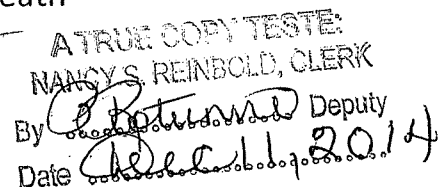 A TRUE COPY TESTE:
NANCY S. REINBOLD, CLERK
By Deputy
Date Dec 11, 2014